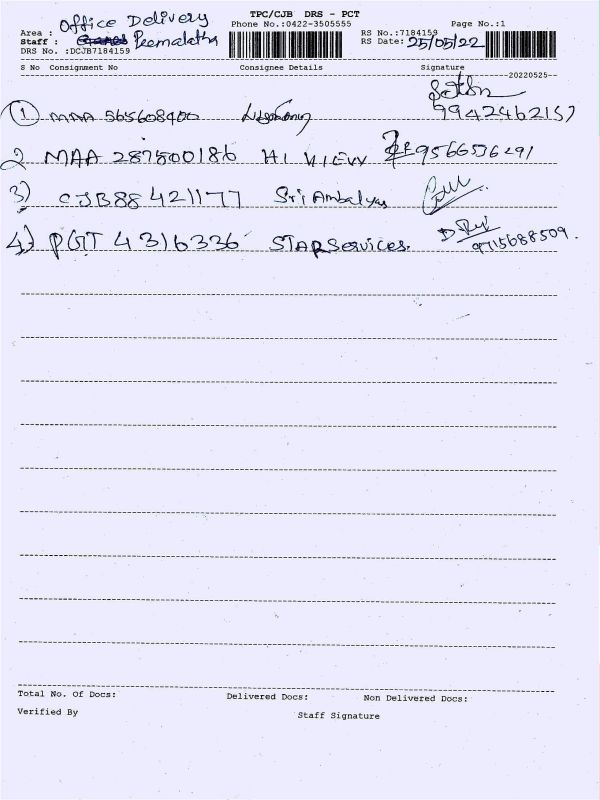 TPC/CJB DRS - PCT
Area : Office Delivery Phone No.:0422-3505555 Page No.:1
Staff : Peemalatha RS No.:7184159
DRS No. :DCJB7184159 RS Date: 25/05/22
S No Consignment No Consignee Details Signature
--20220525--
1 MAA 565608400 9942462157
2 MAA 287800186 HI VIEW 9566536291
3) CJB88 421177 Sri Ambalyas
4) PGT 4316336 STAR Services. 9715688509.
Total No. Of Docs: Delivered Docs: Non Delivered Docs:
Verified By Staff Signature